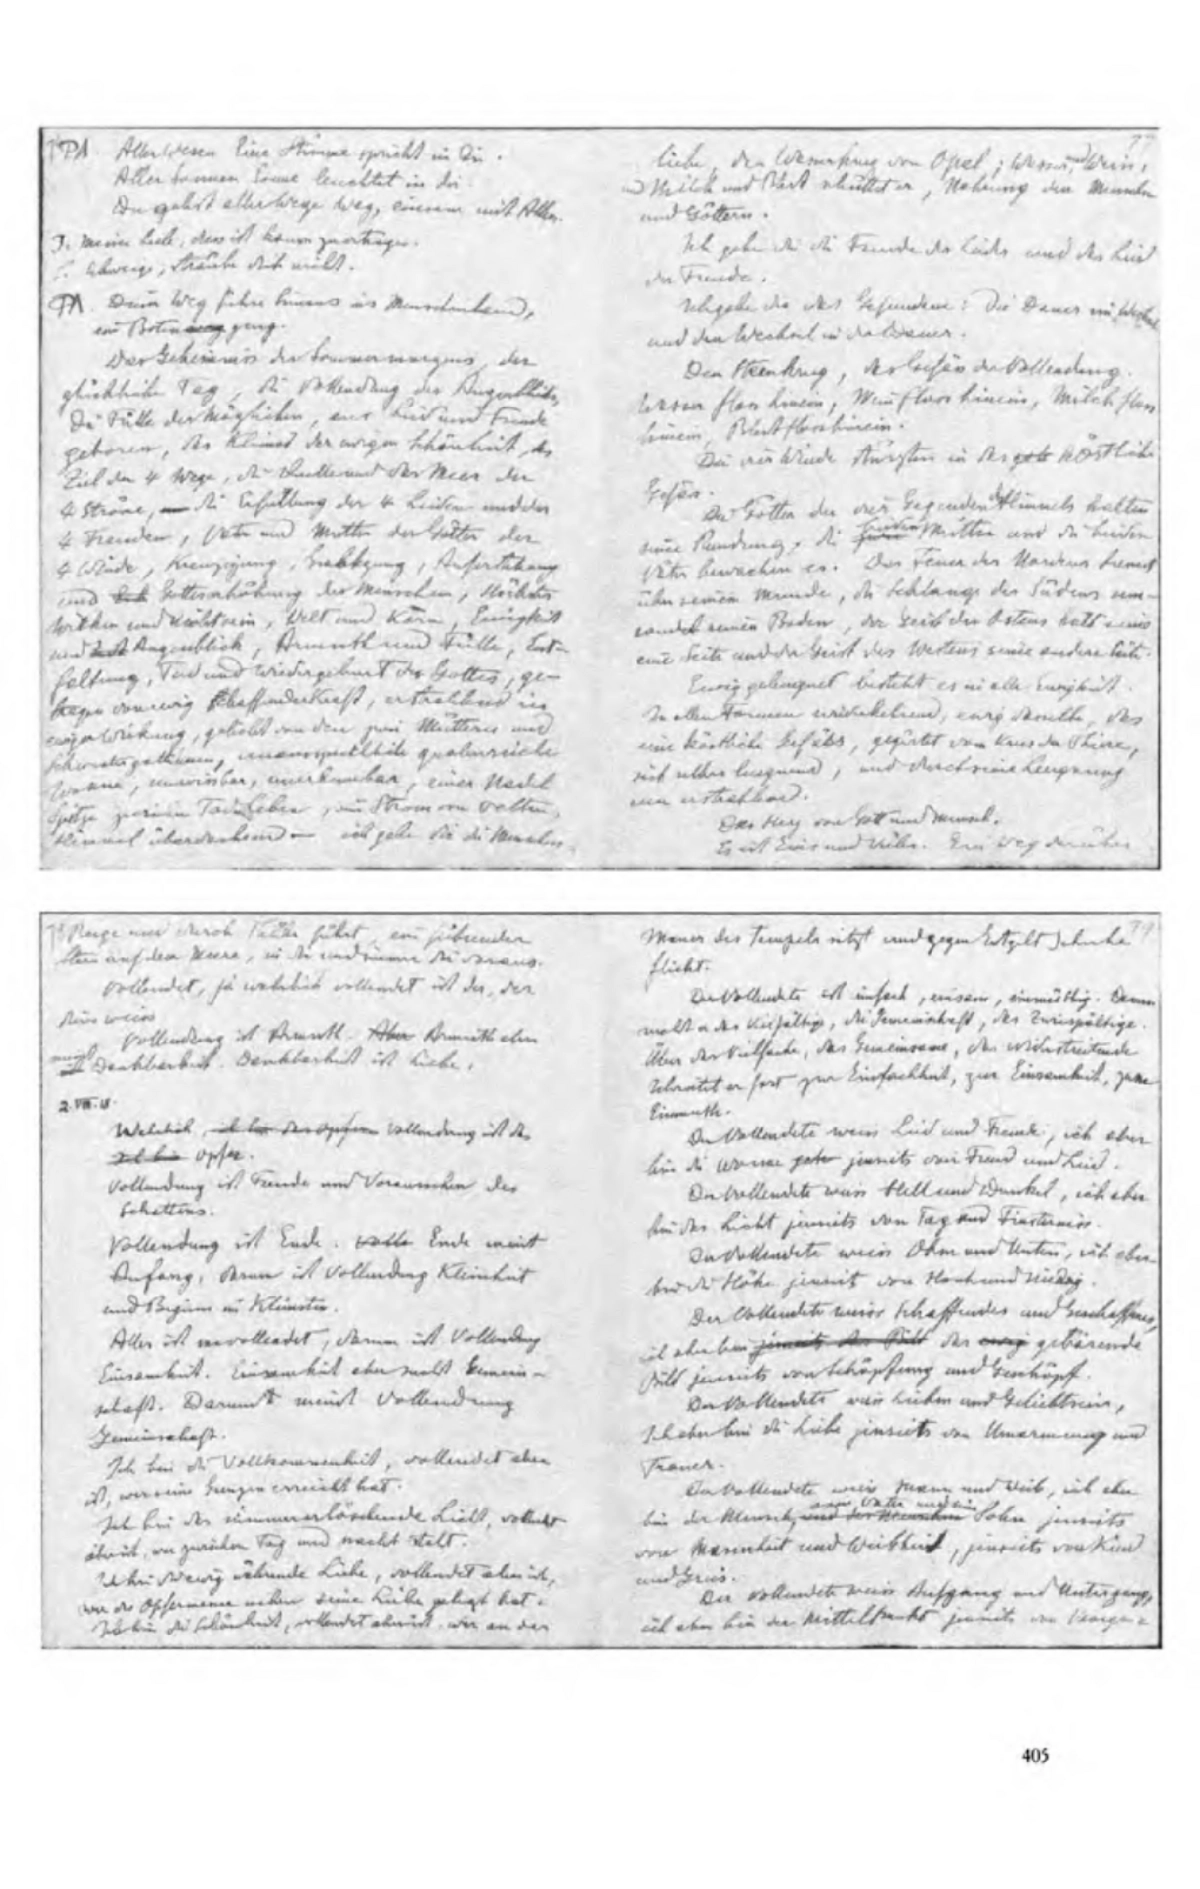 76 ΦΛ. Aller Wesen Eine Stimme spricht in Dir.
Aller Sonnen Sonne leuchtet in dir.
Du gehst aller Wege Weg, einsam mit Allen.
J. meine Seele, dies ist kaum zu ertragen.
S. Schweige, sträube dich nicht.
ΦΛ. Dein Weg führe hinaus ins Menschenland,
ein Boten gang.
Das Geheimnis des Sommermorgens, der
glückliche Tag, die Vollendung des Augenblicks,
Die Fülle des Möglichen, aus Leid und Freude
geboren, das Kleinod der ewigen Schönheit, das
Ziel der 4 Wege, die Quelle und das Meer der
4 Ströme, die Erfüllung der 4 Leiden und der
4 Freuden, Vater und Mutter der Götter der
4 Winde, Kreuzigung, Grablegung, Auferstehung
und Gotteserhöhung des Menschen, Höchstes
Wirken und Nichtsein, Welt und Korn, Ewigkeit
und Augenblick, Armuth und Fülle, Ent-
faltung, Tod und Wiedergeburt des Gottes, ge-
tragen von ewig schaffender Kraft, erstrahlend in
ewiger Wirkung, geliebt von den zwei Müttern und
Schwestergattinnen, unaussprechliche qualenreiche
Wonne, unwissbar, unerkennbar, einer Nadel
Spitze zwischen Tod und Leben, ein Strom von Welten,
Himmel überdachend — ich gebe dir die Menschen-
77
liebe, den Wasserkrug von Opal; Wasser und Wein,
und Milch und Blut schüttet er, Nahrung den Menschen
und Göttern.
Ich gebe dir die Freude des Leides und das Leid
der Freude.
Ich gebe dir das Gefundene: Die Dauer im Wechsel
und den Wechsel in der Dauer.
Den Steinkrug, das Gefäss der Vollendung.
Wasser floss hinein, Wein floss hinein, Milch floss
hinein, Blut floss hinein.
Die vier Winde stürzten in das köstliche
Gefäss.
Die Götter der vier Gegenden des Himmels halten
seine Rundung, die beiden Mütter und die beiden
Väter bewachen es. Das Feuer des Nordens brennt
über seinem Munde, die Schlange des Südens um-
windet seinen Boden, der Geist des Ostens hält seine
eine Seite und der Geist des Westens seine andere Seite.
Ewig geleugnet besteht es in alle Ewigkeit.
In allen Formen wiederkehrend, ewig dasselbe, das
eine köstliche Gefäss, gegürtet vom Kreis der Thiere,
sich selber leugnend, und durch seine Leugnung
neu erstrahlend.
Das Herz von Gott und Mensch.
Es ist Eines und Vieles. Ein Weg der über
78 Berge und durch Thäler führt, ein führender
Stern auf dem Meere, in dir und immer dir voraus.
Vollendet, ja wahrlich vollendet ist der, der
dies weiss
Vollendung ist Armuth. Aber Armuth aber
meint Dankbarkeit. Dankbarkeit ist Liebe.
2. VIII. 18.
Wahrlich, Vollendung ist das
Opfer.
Vollendung ist Freude und Voraussehen des
Schattens.
Vollendung ist Ende. Ende meint
Anfang, darum ist Vollendung Kleinheit
und Beginn im Kleinsten.
Alles ist unvollendet, darum ist Vollendung
Einsamkeit. Einsamkeit aber sucht Gemein-
schaft. Darum meint Vollendung
Gemeinschaft.
Ich bin die Vollkommenheit, vollendet aber
ist, wer seine Grenzen erreicht hat.
Ich bin das nimmererlöschende Licht, vollendet
aber ist, wer zwischen Tag und Nacht steht.
Ich bin die ewig währende Liebe, vollendet aber ist,
wer das Opfermesser neben seine Liebe gelegt hat.
Ich bin die Schönheit, vollendet aber ist, wer an der
79
Mauer des Tempels sitzt und gegen Entgelt Schuhe
flickt.
Der Vollendete ist einfach, einsam, einmüthig. Darum
sucht er das Vielfältige, die Gemeinschaft, das Zwiespältige.
Über das Vielfache, das Gemeinsame, das Widerstreitende
schreitet er fort zur Einfachheit, zur Einsamkeit, zum
Einmuth.
Der Vollendete weiss Leid und Freude, ich aber
bin die Wonne jenseits von Freud und Leid.
Der Vollendete weiss Hell und Dunkel, ich aber
bin das Licht jenseits von Tag und Finsterniss.
Der Vollendete weiss Oben und Unten, ich aber
bin die Höhe jenseits von Hoch und Niedrig.
Der Vollendete weiss Schaffendes und Geschaffenes,
ich aber bin jenseits das Bild das ewig gebärende
Bild jenseits von Schöpfung und Geschöpf.
Der Vollendete weiss Lieben und Geliebtsein,
Ich aber bin die Liebe jenseits von Umarmung und
Trauer.
Der Vollendete weiss Mann und Weib, ich aber
bin der Mensch, sein Vater und sein Sohn jenseits
von Mannheit und Weibheit, jenseits von Kind
und Greis.
Der Vollendete weiss Aufgang und Untergang,
ich aber bin der Mittelpunkt jenseits von Morgen-
405